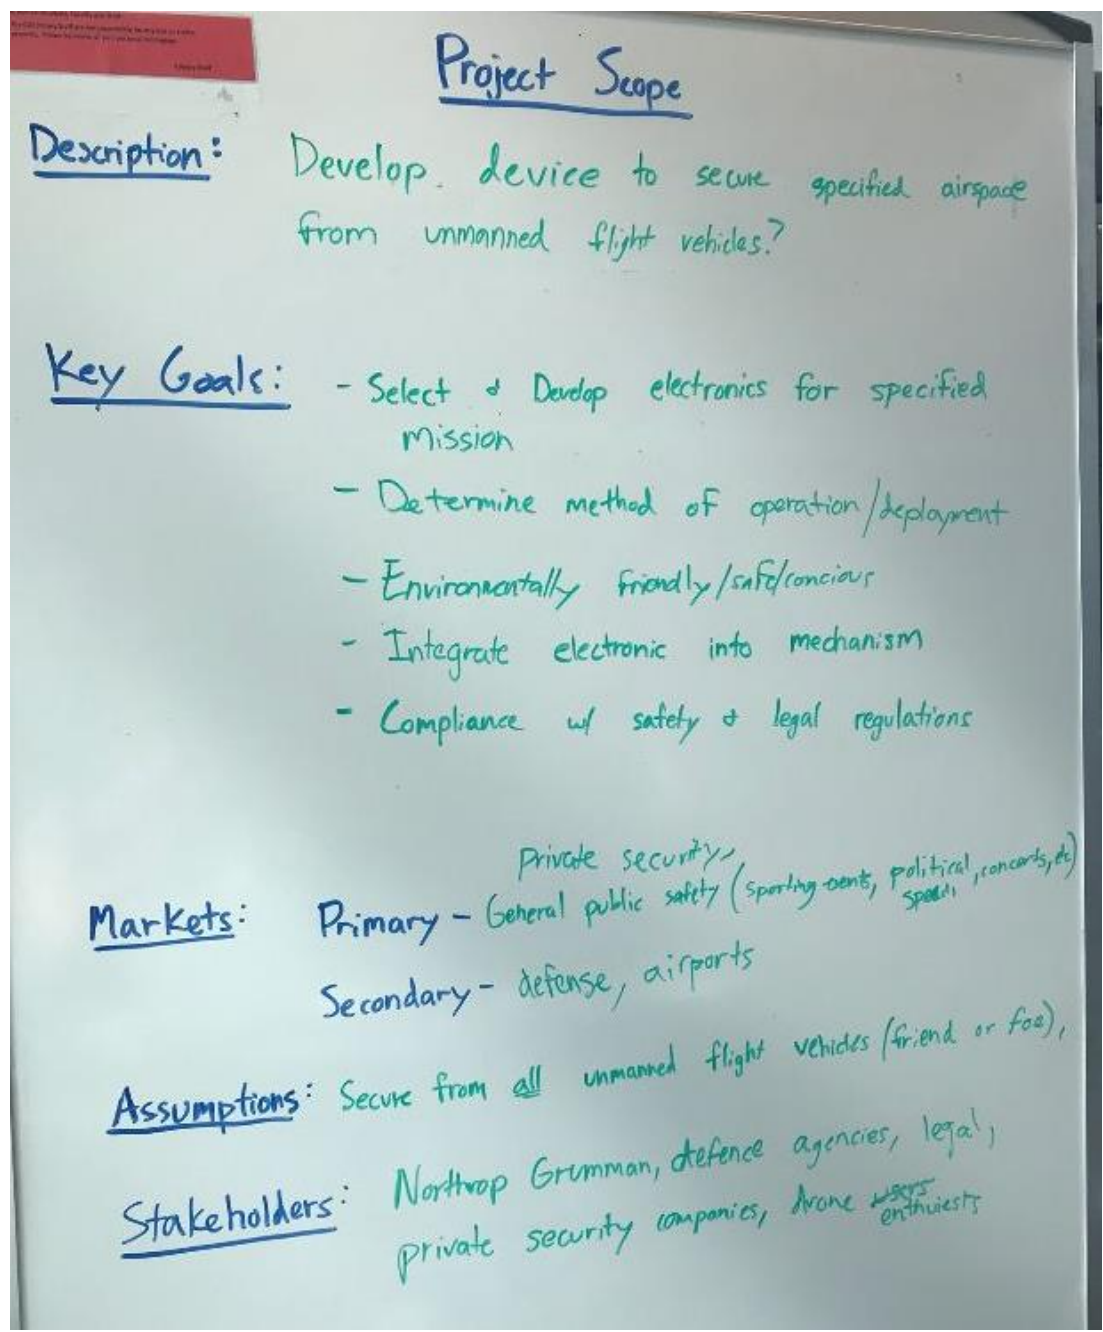 Project Scope
Description: Develop. device to secure specified airspace
from unmanned flight vehicles?
Key Goals: - Select & Develop electronics for specified
mission
- Determine method of operation/deployment
- Environmentally friendly/safe/concious
- Integrate electronic into mechanism
- Compliance w/ safety & legal regulations
private security,
Markets: Primary - General public safety (sporting events, political, concerts, etc)
speech
Secondary - defense, airports
Assumptions: Secure from all unmanned flight vehicles (friend or foe),
Stakeholders: Northrop Grumman, defence agencies, legal,
private security companies, drone users
enthuiests